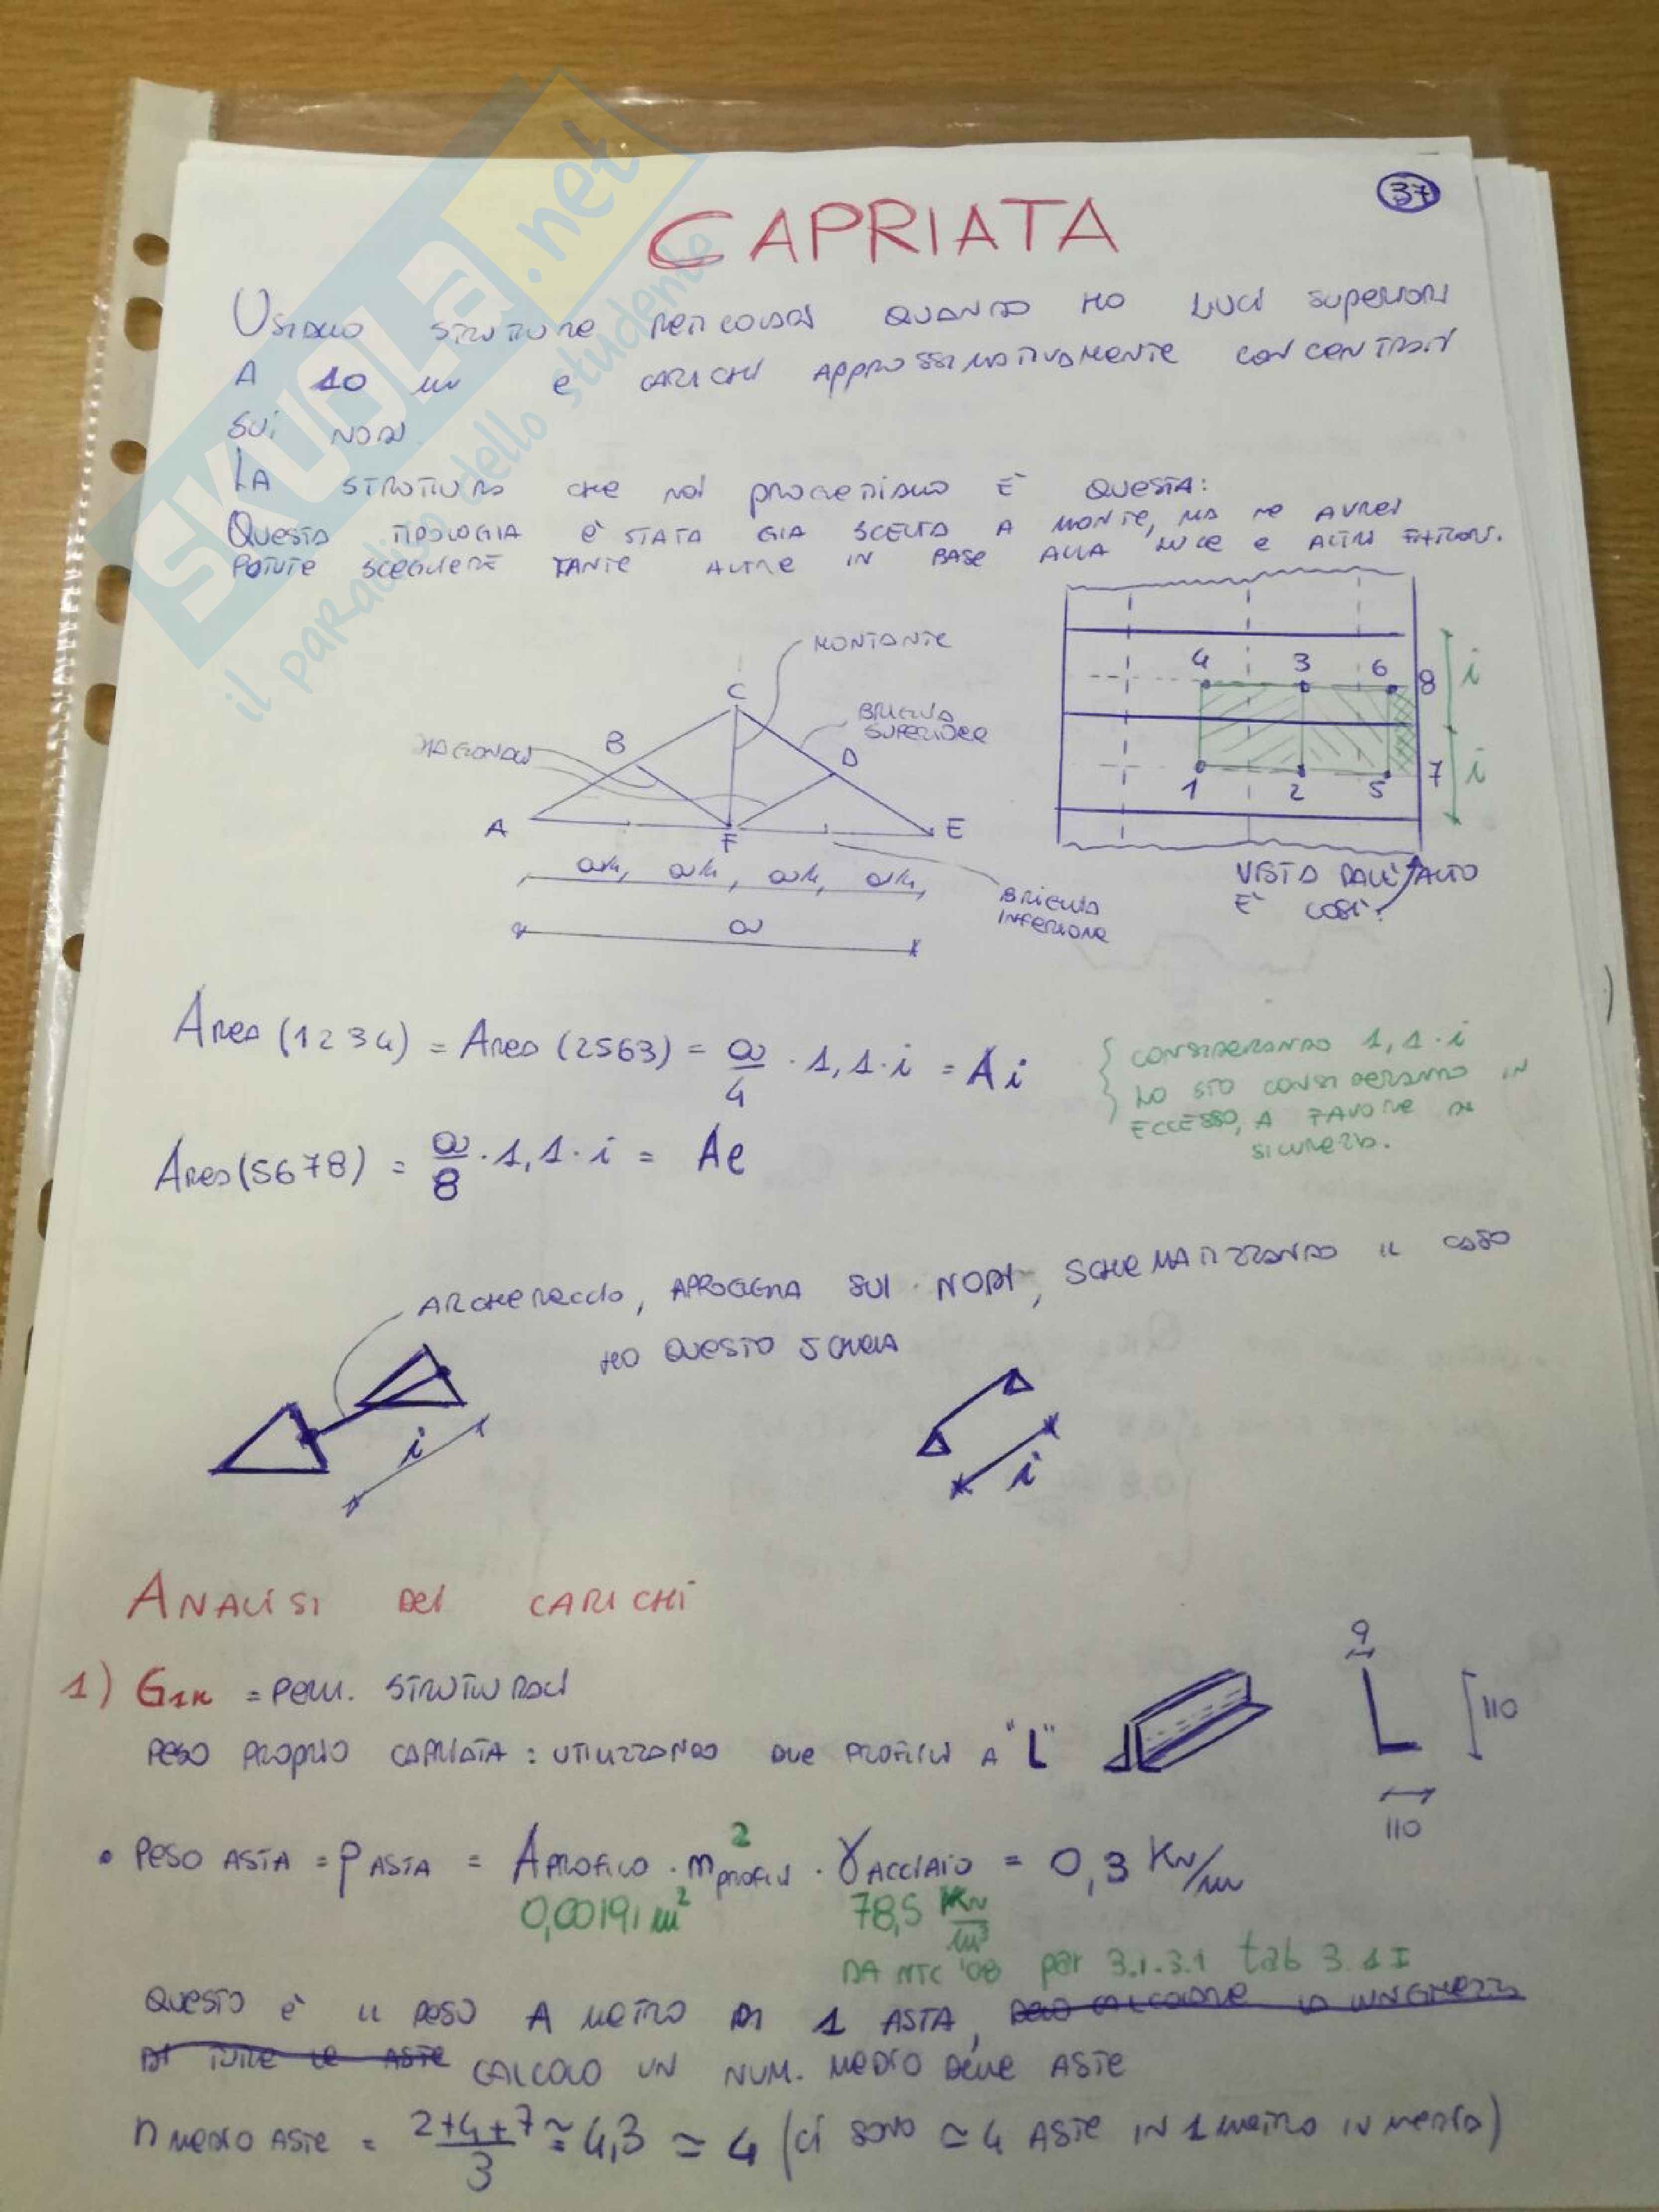 37
CAPRIATA
USIAMO STRUTTURE RETICOLARI QUANDO HO LUCI SUPERIORI
A 10 m E CARICHI APPROSSIMATIVAMENTE CONCENTRATI
SUI NODI.
LA STRUTTURA CHE NOI PROGETTIAMO È QUESTA:
QUESTA TIPOLOGIA È STATA GIA SCELTA A MONTE, MA NE AVREI
POTUTE SCEGLIERE TANTE ALTRE IN BASE ALLA LUCE E ALTRI FATTORI.
MONTANTE
C
BRIGLIA
SUPERIORE
DIAGONALI
B
D
A
F
E
a/4, a/4, a/4, a/4,
a
BRIGLIA
INFERIORE
4 3 6 8
i
1 2 5 7
i
VISTA DALL'ALTO
E' COSÌ:
AREA (1234) = AREA (2563) = a/4 · 1,1 · i = Ai
{ CONSIDERANDO 1,1 · i
LO STO CONSIDERANDO IN
ECCESSO, A FAVORE DI
SICUREZZA.
AREA (5678) = a/8 · 1,1 · i = Ae
ARCHERECCIO, APPOGGIA SUI NODI, SCHEMATIZZANDO IL CASO
HO QUESTO SCHEMA
i
i
ANALISI DEI CARICHI
1) G1K = PERM. STRUTTURALI
PESO PROPRIO CAPRIATA : UTILIZZANDO DUE PROFILI A "L"
9
110
110
• PESO ASTA = PASTA = APROFILO · nprofili · γACCIAIO = 0,3 KN/m
2
0,00191 m²
78,5 KN/m³
DA NTC '08 par 3.1.3.1 tab 3.1 I
QUESTO È IL PESO A METRO DI 1 ASTA, DEVO CALCOLARE LA LUNGHEZZA
DI TUTTE LE ASTE CALCOLO UN NUM. MEDIO DELLE ASTE
n MEDIO ASTE = 2+4+7/3 ≃ 4,3 ≃ 4 (CI SONO ≃ 4 ASTE IN 1 METRO IN MEDIA)
SKUOLa.net
il paradiso dello studente